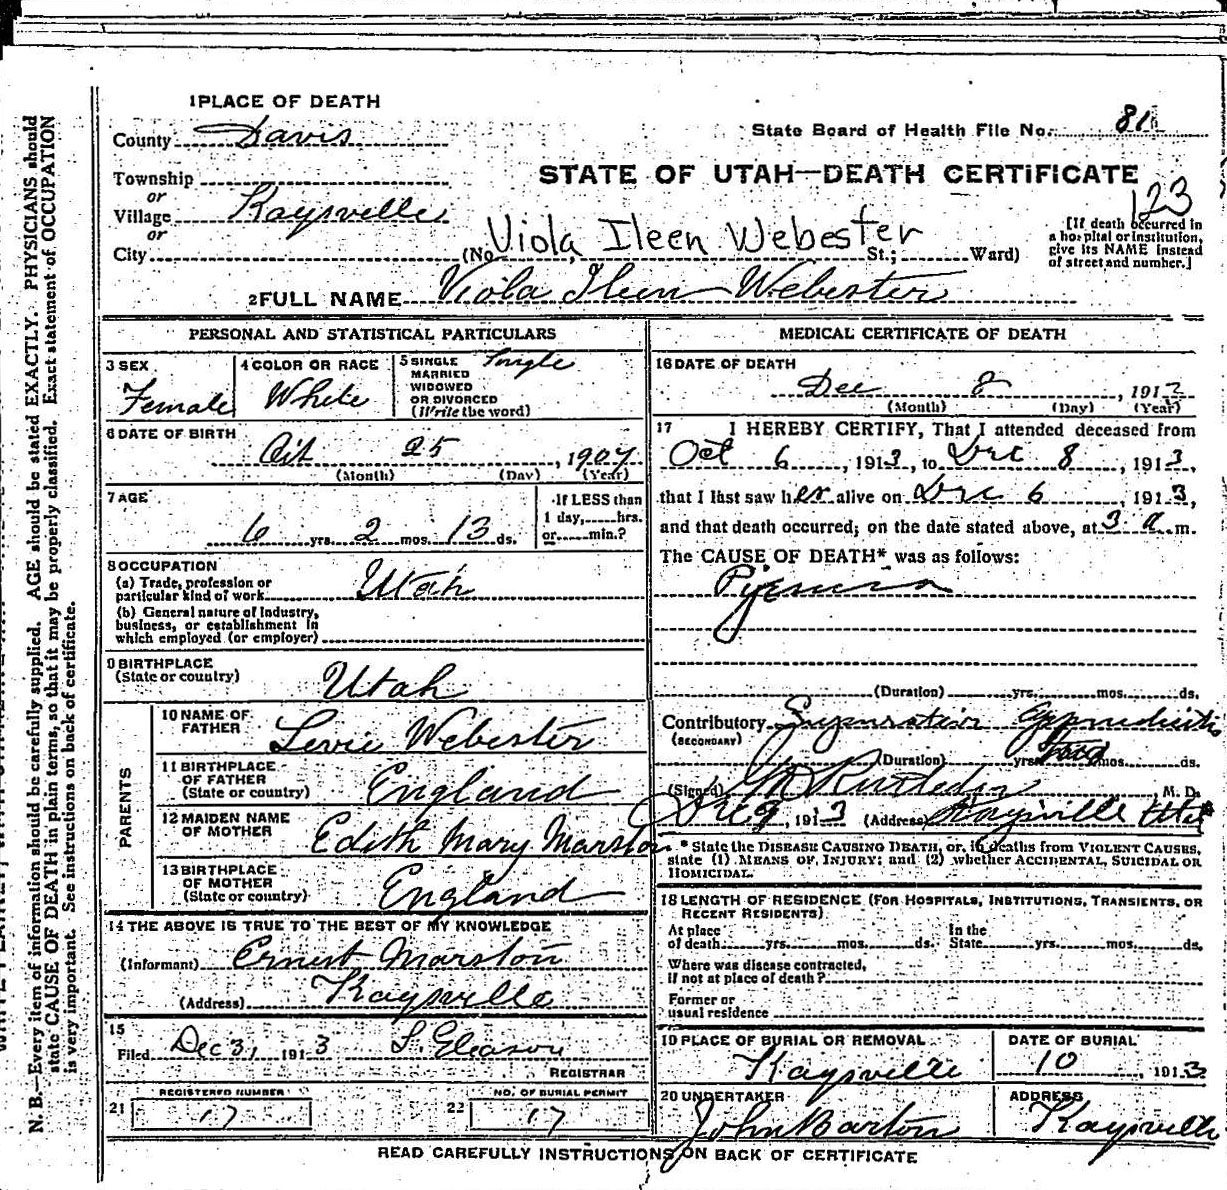 1 PLACE OF DEATH
County Davis
State Board of Health File No. 81
Township
or
Village Kaysville
or
City
STATE OF UTAH—DEATH CERTIFICATE
123
(No. Viola Ileen Webester St.; Ward)
[If death occurred in
a hospital or institution,
give its NAME instead
of street and number.]
2 FULL NAME Viola Ileen Webester
PERSONAL AND STATISTICAL PARTICULARS
3 SEX
Female
4 COLOR OR RACE
White
5 SINGLE
MARRIED
WIDOWED
OR DIVORCED
(Write the word)
Single
6 DATE OF BIRTH
Oct 25, 1907
(Month) (Day) (Year)
7 AGE
6 yrs. 2 mos. 13 ds.
If LESS than
1 day, hrs.
or min.?
8 OCCUPATION
(a) Trade, profession or
particular kind of work Utah
(b) General nature of Industry,
business, or establishment in
which employed (or employer)
9 BIRTHPLACE
(State or country) Utah
PARENTS
10 NAME OF
FATHER Levie Webester
11 BIRTHPLACE
OF FATHER
(State or country) England
12 MAIDEN NAME
OF MOTHER Edith Mary Marston
13 BIRTHPLACE
OF MOTHER
(State or country) England
14 THE ABOVE IS TRUE TO THE BEST OF MY KNOWLEDGE
(Informant) Ernest Marston
(Address) Kaysville
15
Filed Dec 31, 1913 S. Gleason
REGISTRAR
REGISTERED NUMBER
21 17
NO. OF BURIAL PERMIT
22 17
MEDICAL CERTIFICATE OF DEATH
16 DATE OF DEATH
Dec 8, 1913
(Month) (Day) (Year)
17 I HEREBY CERTIFY, That I attended deceased from
Oct 6, 1913, to Dec 8, 1913,
that I last saw her alive on Dec 6, 1913,
and that death occurred, on the date stated above, at 3 a m.
The CAUSE OF DEATH* was as follows:
(Duration) yrs. mos. ds.
Contributory
(SECONDARY)
(Duration) yrs. mos. ds.
(Signed) M. D.
Dec 9, 1913 (Address) Kaysville Utah
* State the DISEASE CAUSING DEATH, or, if deaths from VIOLENT CAUSES,
state (1) MEANS OF INJURY; and (2) whether ACCIDENTAL, SUICIDAL OR
HOMICIDAL.
18 LENGTH OF RESIDENCE (FOR HOSPITALS, INSTITUTIONS, TRANSIENTS, OR
RECENT RESIDENTS).
At place
of death yrs. mos. ds.
In the
State yrs. mos. ds.
Where was disease contracted,
if not at place of death?
Former or
usual residence
19 PLACE OF BURIAL OR REMOVAL
Kaysville
DATE OF BURIAL
10, 1913
20 UNDERTAKER
John Barton
ADDRESS
Kaysville
READ CAREFULLY INSTRUCTIONS ON BACK OF CERTIFICATE
N. B.—Every item of information should be carefully supplied. AGE should be stated EXACTLY. PHYSICIANS should
state CAUSE OF DEATH in plain terms, so that it may be properly classified. Exact statement of OCCUPATION
is very important. See instructions on back of certificate.